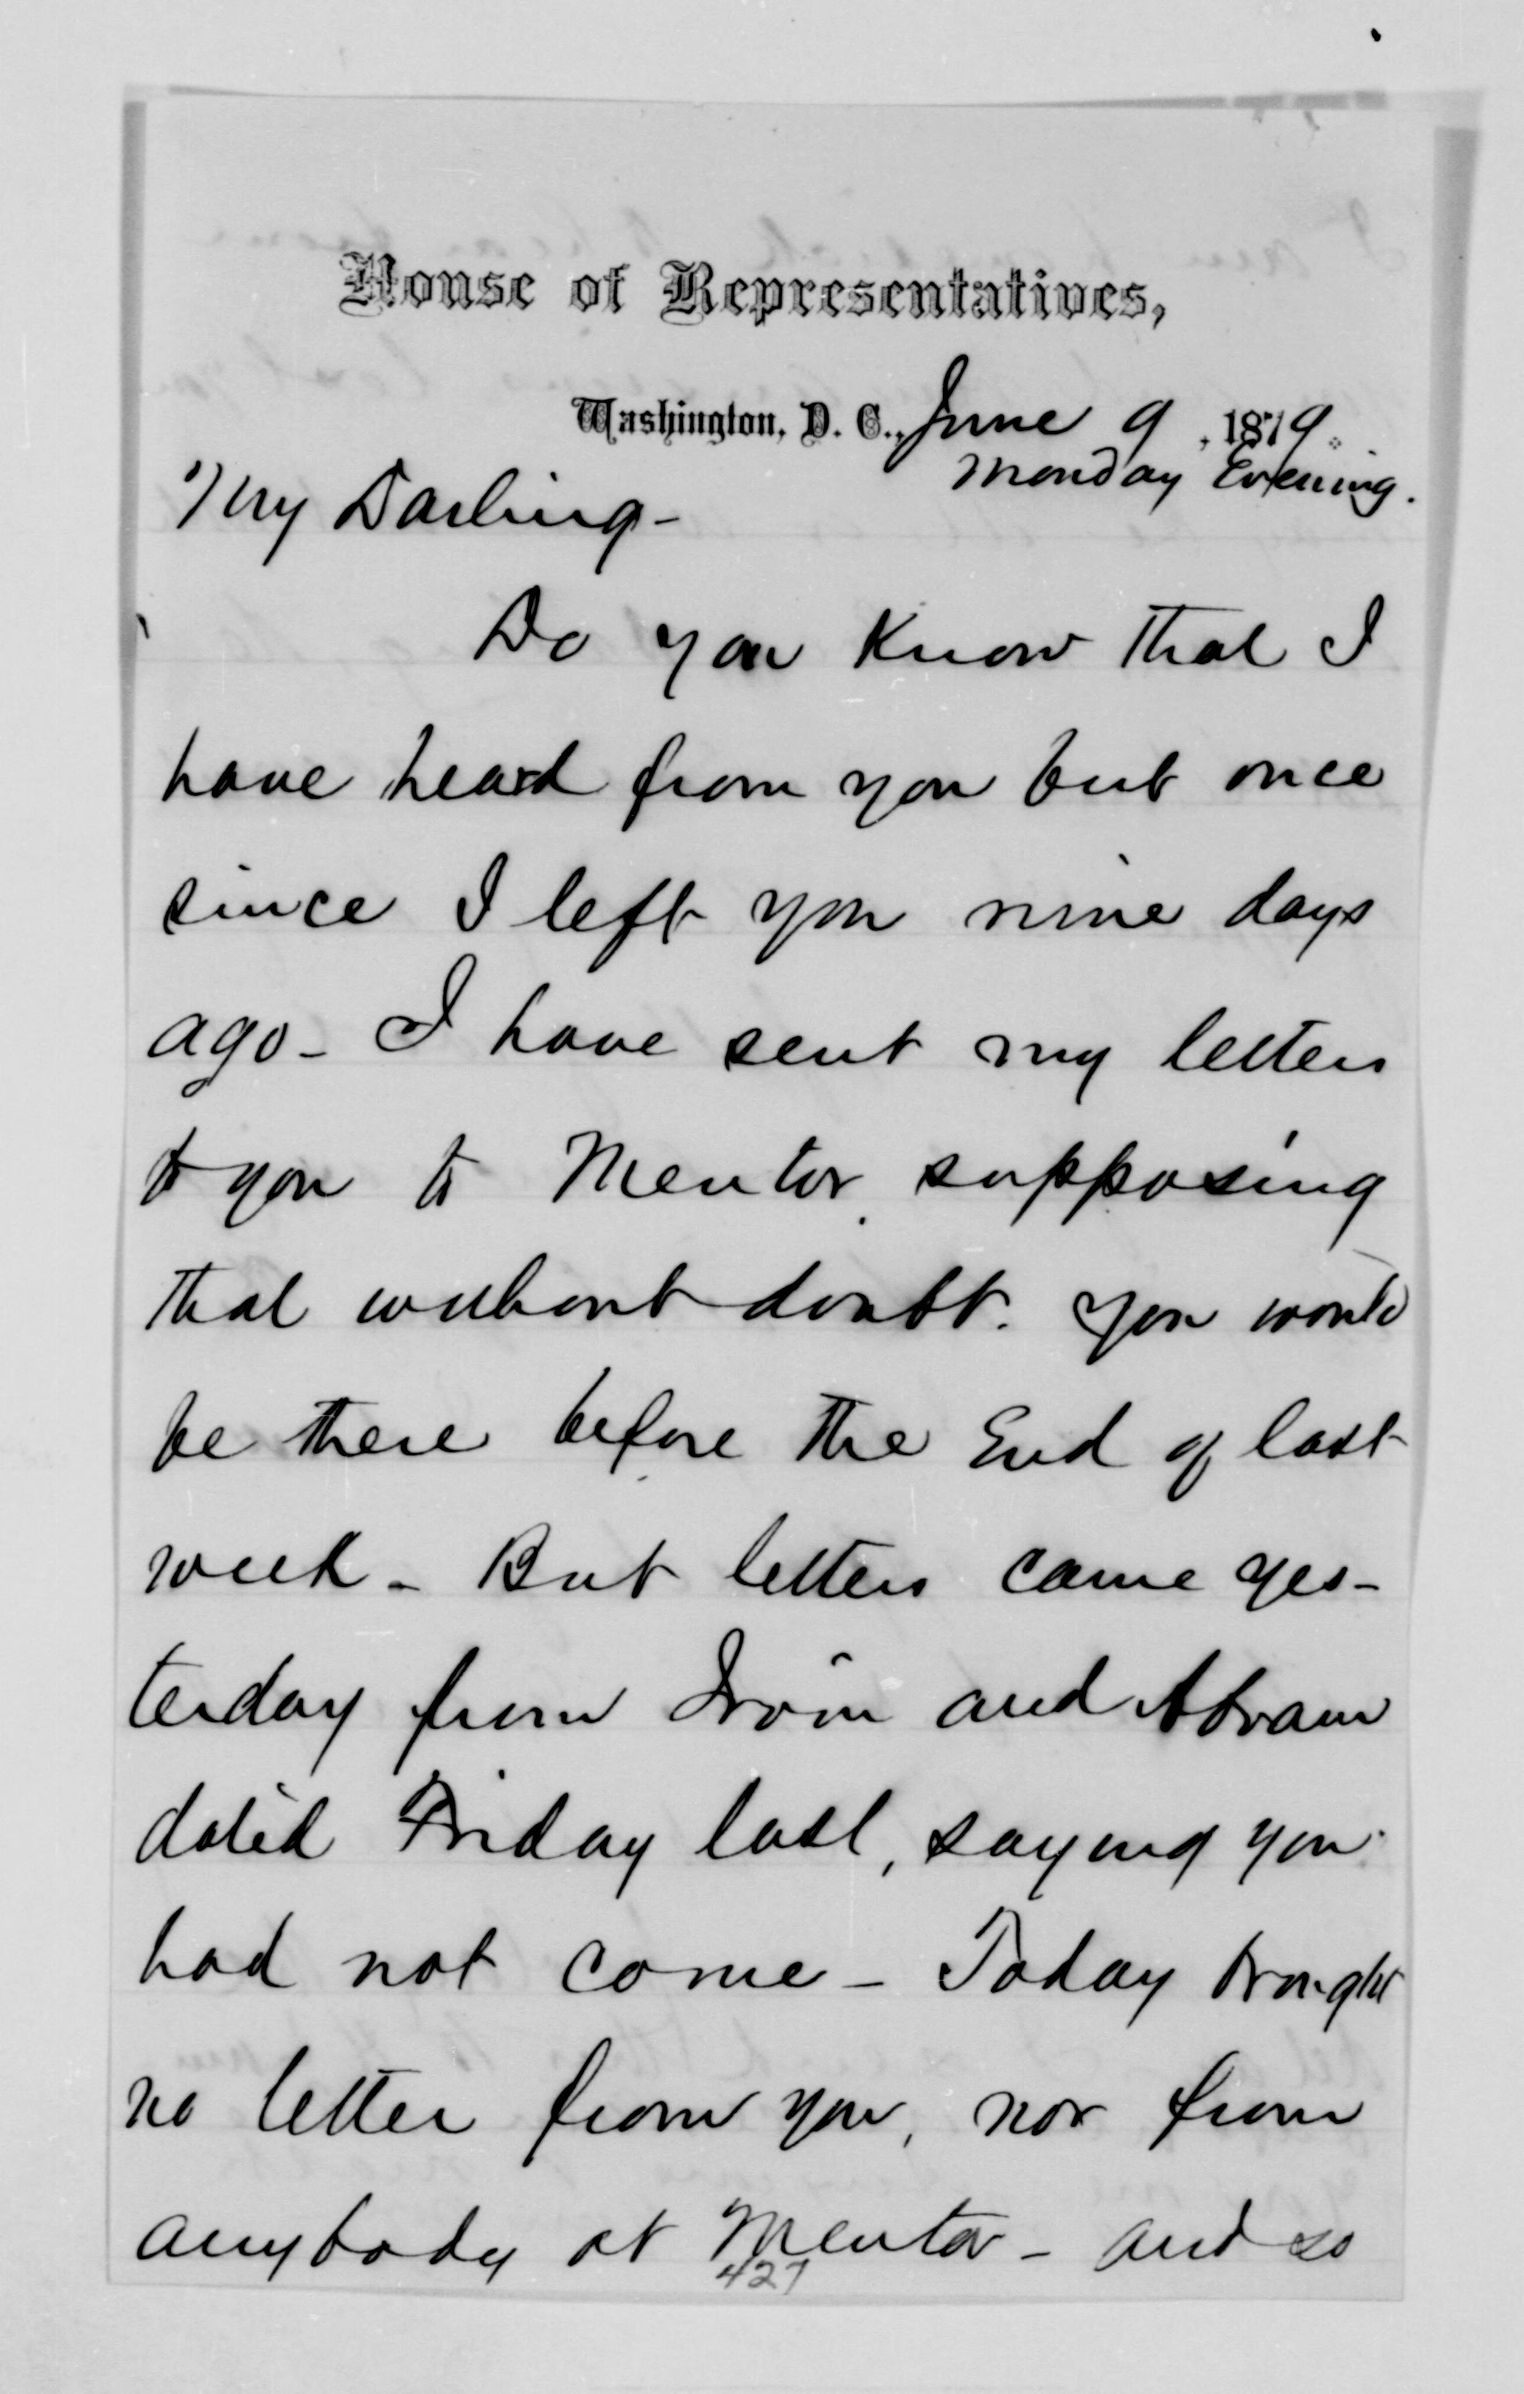 House of Representatives,
Washington, D. C., June 9, 1879.
Monday Evening.
My Darling-
Do you know that I
have heard from you but once
since I left you nine days
ago - I have sent my letters
to you to Mentor, supposing
that without doubt. you would
be there before the End of last
week - But letters came yes-
terday from Irvin and Abram
dated Friday last, saying you
had not come - Today brought
no letter from you, nor from
anybody at Mentor - and so
427